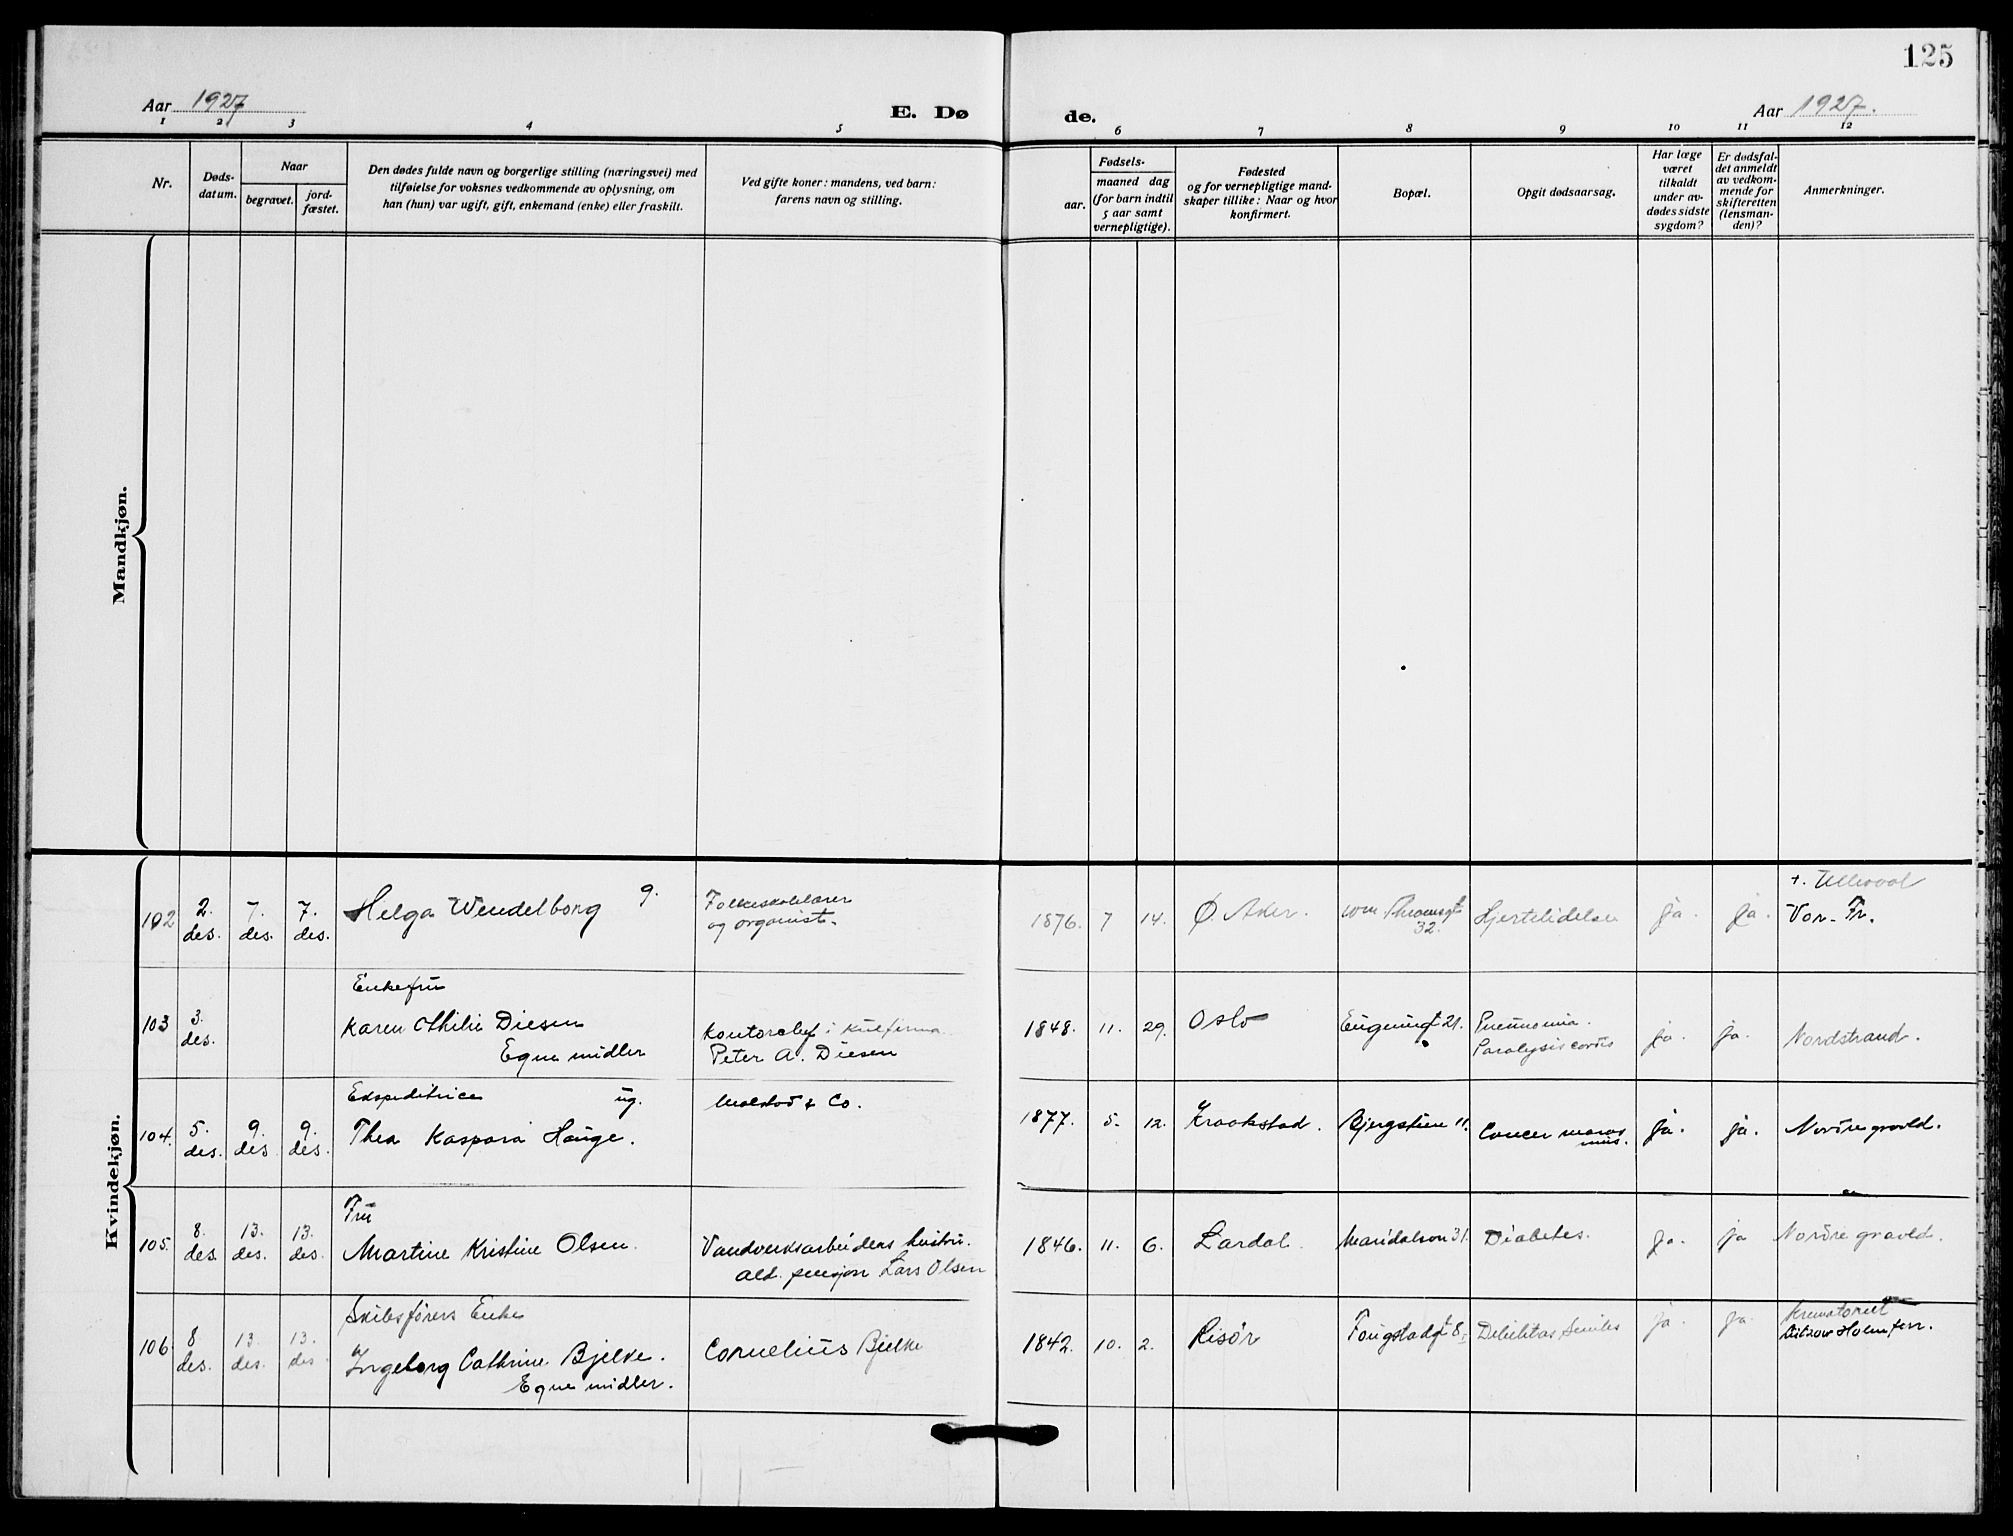 125
Aar 1927
E. Dø
de.
Aar 1927.
1 2 3 4 5 6 7 8 9 10 11 12
Nr.
Døds-
datum.
Naar
begravet.
jord-
fæstet.
Den dødes fulde navn og borgerlige stilling (næringsvei) med
tilføielse for voksnes vedkommende av oplysning, om
han (hun) var ugift, gift, enkemand (enke) eller fraskilt.
Ved gifte koner: mandens, ved barn:
farens navn og stilling.
Fødsels-
aar.
maaned dag
(for barn indtil
5 aar samt
vernepligtige).
Fødested
og for vernepligtige mand-
skaper tillike: Naar og hvor
konfirmert.
Bopæl.
Opgit dødsaarsag.
Har læge
været
tilkaldt
under av-
dødes sidste
sygdom?
Er dødsfal-
det anmeldt
av vedkom-
mende for
skifteretten
(lensman-
den)?
Anmerkninger.
Mandkjøn.
Kvindekjøn.
102
2. des.
7. des.
7. des.
Helga Wendelborg g.
Folkeskolelærer
og organist.
1876. 7 14.
Ø. Aker.
Thranesgt
32.
Hjertelidelse
ja.
ja.
+. Ullevaal
Vor Fr.
103
3. des.
Enkefru
Karen Othilie Diesen
Egne midler
Kontorchef i kulfirma
Peter A. Diesen
1848. 11. 29.
Oslo
Eugeniegt 21.
Pneumonia.
Paralysis cordis
ja.
ja.
Nordstrand.
104.
5. des.
9. des
9. des.
Ekspeditrice ug.
Thea Kaspara Hauge.
Molstad & Co.
1877. 5. 12.
Kraakstad.
Bjergstien 11.
Cancer
ja.
ja.
Nordre gravld.
105.
8. des
13. des.
13. des.
Fru
Martine Kristine Olsen.
Vandverksarbeiders hustru.
ald. pensjon Lars Olsen
1846. 11. 6.
Lardal.
Maridalsvn 31.
Diabetes.
ja.
ja
Nordre gravld.
106
8 des.
13. des.
13. des.
Skibsførers Enke
Ingeborg Cathrine Bjelke.
Egne midler.
Cornelius Bjelke
1842. 10. 2.
Risør
Fougstadgt 8.
Debilitas Senilis
ja.
ja.
Krematoriet